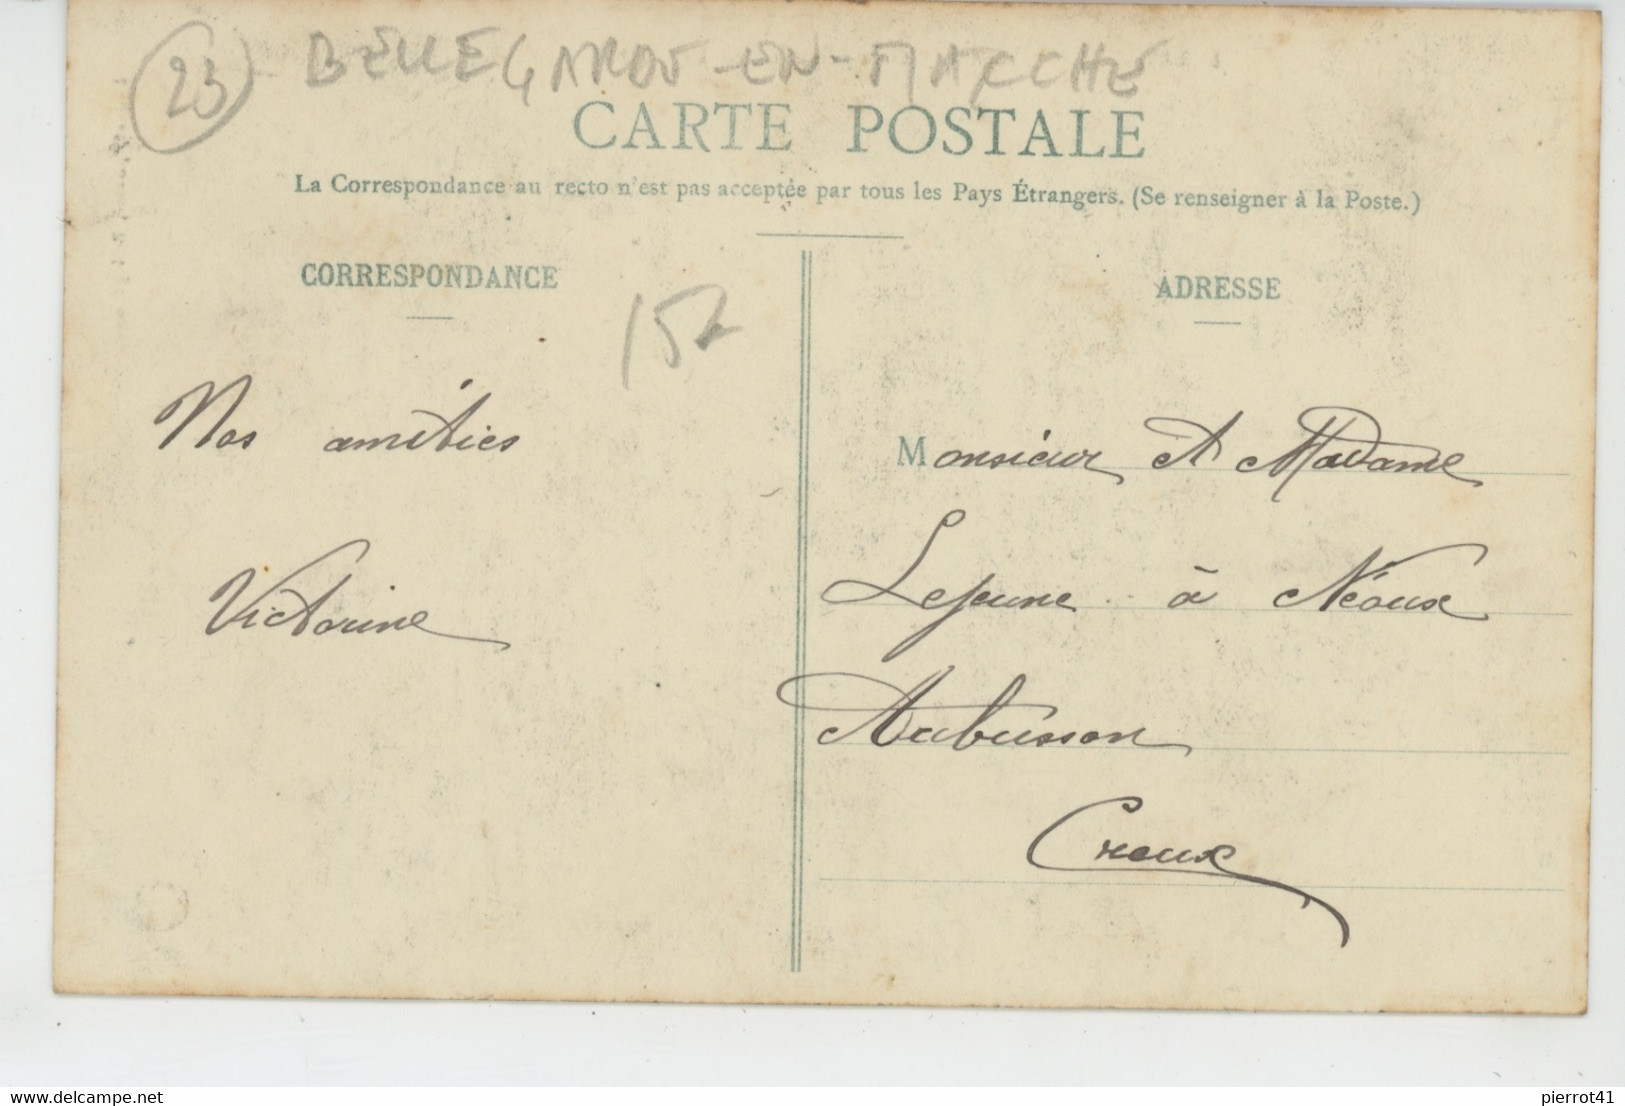 23 BELLEGARDE-EN-MARCHE
CARTE POSTALE
La Correspondance au recto n'est pas acceptée par tous les Pays Étrangers. (Se renseigner à la Poste.)
CORRESPONDANCE
15
Nos amitiés
Victorine
ADRESSE
Monsieur et Madame
Lejeune à Néoux
Aubusson
Creuse
www.delcampe.net
pierrot41